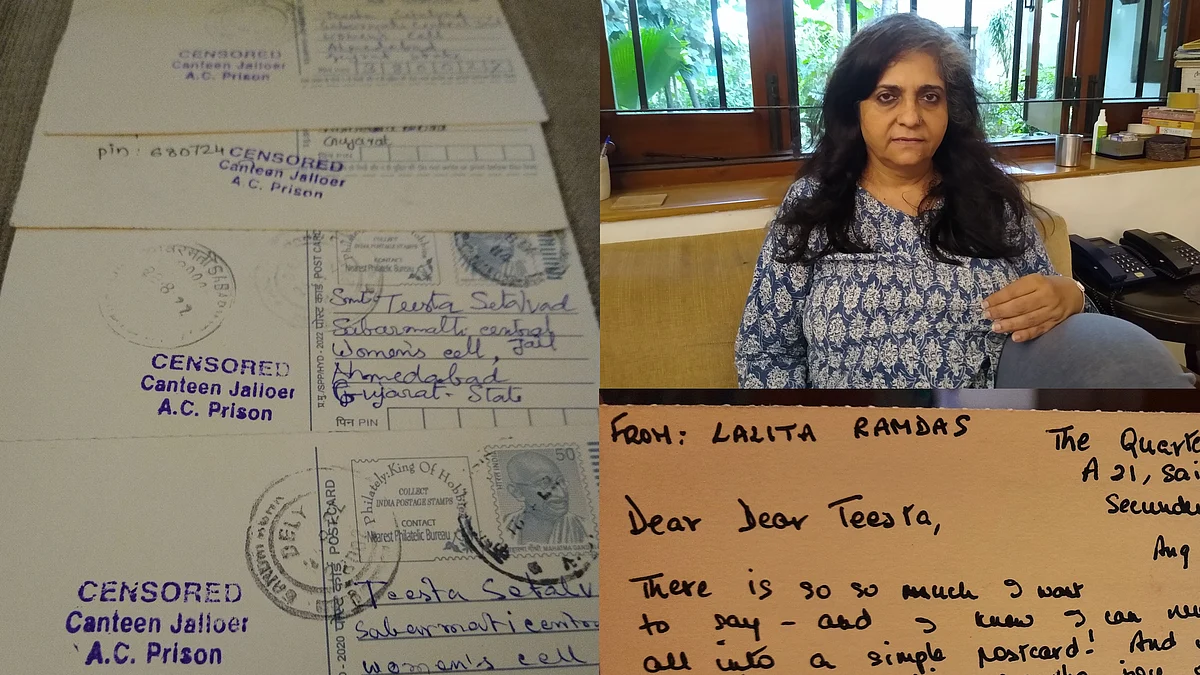 CENSORED
Canteen Jalloer
A.C. Prison
Teesta Setalvad
Sabarmati central
women's cell
Ahmedabad
pin: 680724
CENSORED
Canteen Jalloer
A.C. Prison
Gujarat
CENSORED
Canteen Jalloer
A.C. Prison
2022 पोस्ट कार्ड POST CARD
COLLECT
INDIA POSTAGE STAMPS
CONTACT
Nearest Philatelic Bureau
Smt. Teesta Setalvad
Sabarmatti central
Jail
Women's cell,
Ahmedabad
Gujarat - State
पिन PIN
CENSORED
Canteen Jalloer
A.C. Prison
POST CARD
Philately: King Of Hobbies
COLLECT
INDIA POSTAGE STAMPS
CONTACT
Nearest Philatelic Bureau
50
Teesta Setalv
Sabarmati centra
women's cell
FROM: LALITA RAMDAS
The Quarte
A 21, Sai
Secunder
Aug
Dear Dear Teesta,
There is so so much I want
to say - and I know I can
all into a simple postcard! And